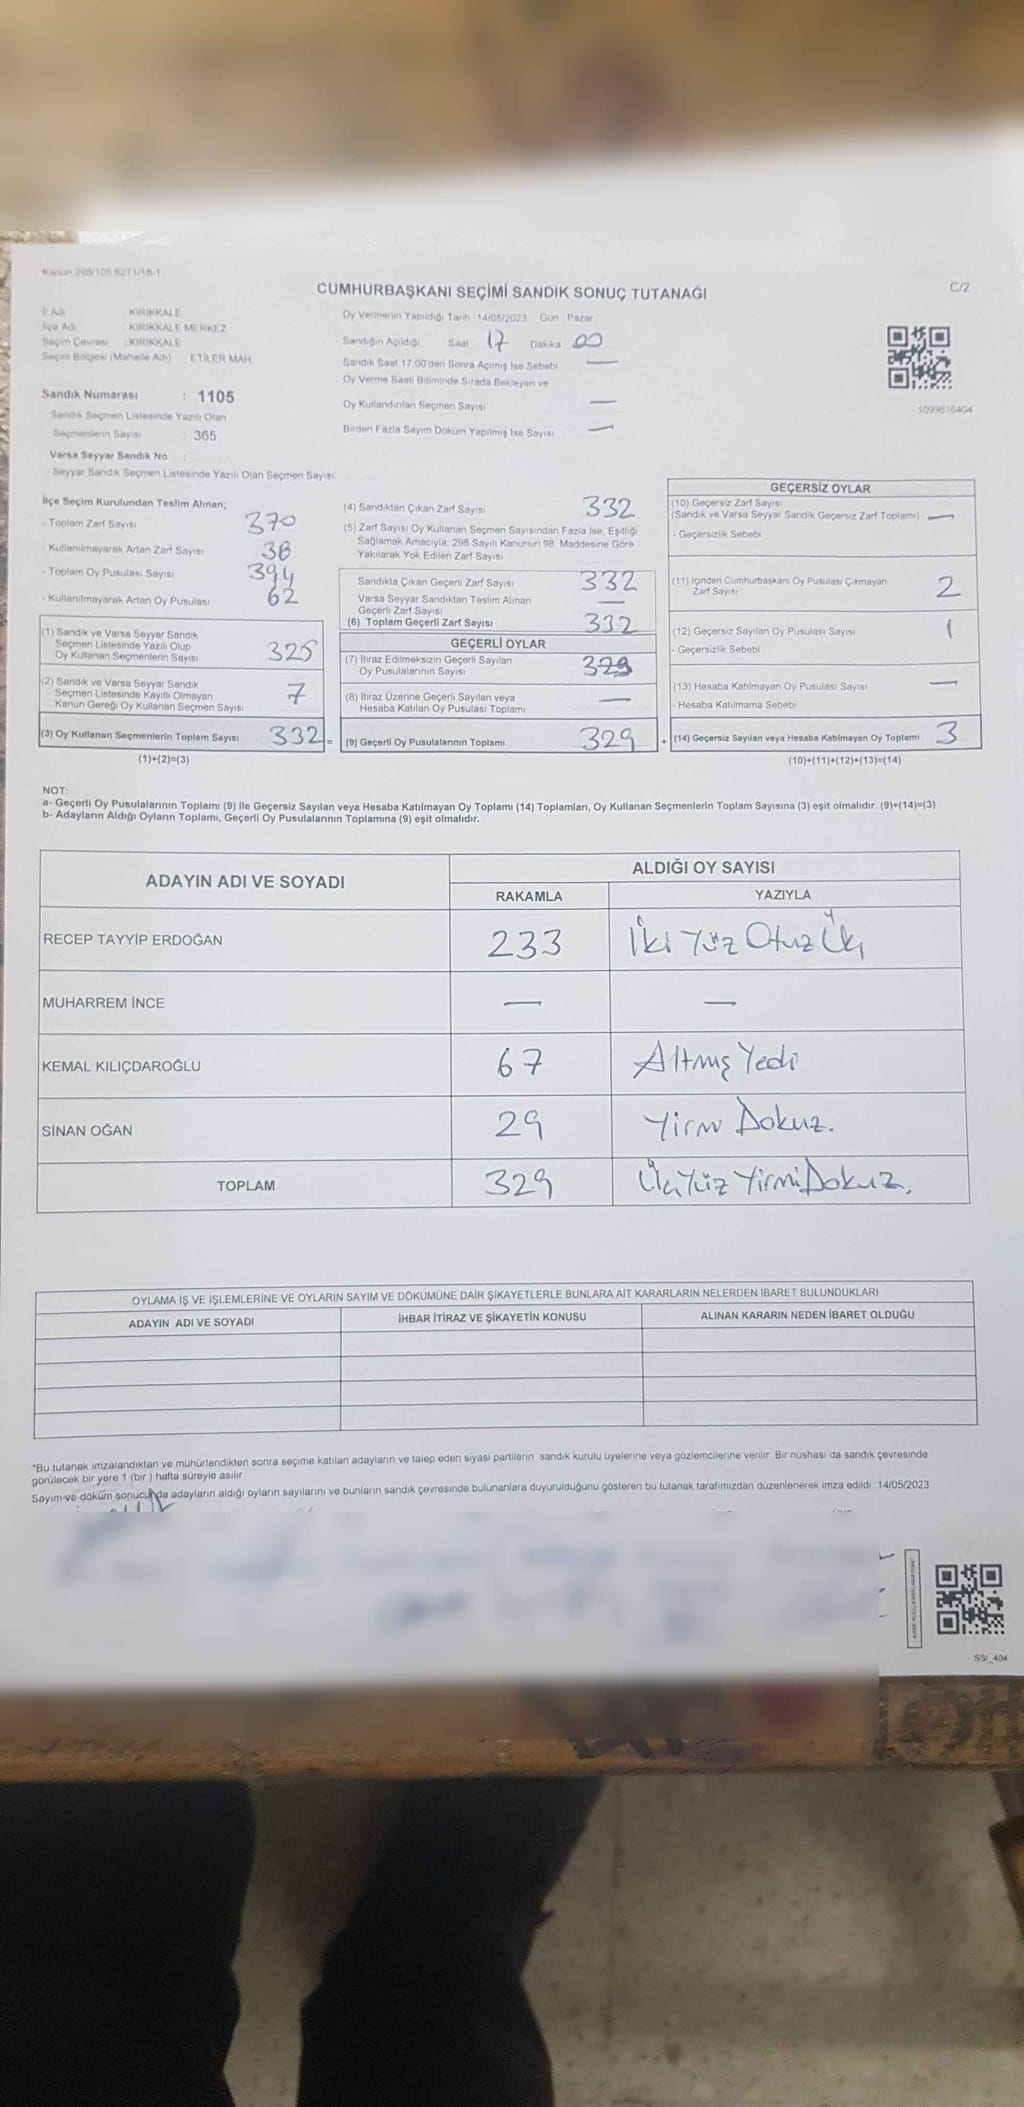 Kanun 298/105,6271/18-1
CUMHURBAŞKANI SEÇİMİ SANDIK SONUÇ TUTANAĞI
C/2
İl Adı : KIRIKKALE
İlçe Adı : KIRIKKALE MERKEZ
Seçim Çevresi : KIRIKKALE
Seçim Bölgesi (Mahalle Adı) : ETİLER MAH.
Sandık Numarası : 1105
Sandık Seçmen Listesinde Yazılı Olan
Seçmenlerin Sayısı : 365
Varsa Seyyar Sandık No :
- Seyyar Sandık Seçmen Listesinde Yazılı Olan Seçmen Sayısı:
Oy Vermenin Yapıldığı Tarih : 14/05/2023 Gün : Pazar
Sandığın Açıldığı Saat 17 Dakika 00
Sandık Saat 17.00'den Sonra Açılmış İse Sebebi —
Oy Verme Saati Bitiminde Sırada Bekleyen ve
Oy Kullandırılan Seçmen Sayısı —
Birden Fazla Sayım Döküm Yapılmış İse Sayısı —
1093616404
İlçe Seçim Kurulundan Teslim Alınan;
- Toplam Zarf Sayısı 370
- Kullanılmayarak Artan Zarf Sayısı 38
- Toplam Oy Pusulası Sayısı 394
- Kullanılmayarak Artan Oy Pusulası 62
(1) Sandık ve Varsa Seyyar Sandık
Seçmen Listesinde Yazılı Olup
Oy Kullanan Seçmenlerin Sayısı 325
(2) Sandık ve Varsa Seyyar Sandık
Seçmen Listesinde Kayıtlı Olmayan
Kanun Gereği Oy Kullanan Seçmen Sayısı 7
(3) Oy Kullanan Seçmenlerin Toplam Sayısı 332 =
(1)+(2)=(3)
(4) Sandıktan Çıkan Zarf Sayısı 332
(5) Zarf Sayısı Oy Kullanan Seçmen Sayısından Fazla İse, Eşitliği
Sağlamak Amacıyla; 298 Sayılı Kanunun 98. Maddesine Göre
Yakılarak Yok Edilen Zarf Sayısı
Sandıkta Çıkan Geçerli Zarf Sayısı 332
Varsa Seyyar Sandıktan Teslim Alınan
Geçerli Zarf Sayısı —
(6) Toplam Geçerli Zarf Sayısı 332
GEÇERLİ OYLAR
(7) İtiraz Edilmeksizin Geçerli Sayılan
Oy Pusulalarının Sayısı 329
(8) İtiraz Üzerine Geçerli Sayılan veya
Hesaba Katılan Oy Pusulası Toplamı —
(9) Geçerli Oy Pusulalarının Toplamı 329 +
GEÇERSİZ OYLAR
(10) Geçersiz Zarf Sayısı
(Sandık ve Varsa Seyyar Sandık Geçersiz Zarf Toplamı) —
- Geçersizlik Sebebi
(11) İçinden Cumhurbaşkanı Oy Pusulası Çıkmayan
Zarf Sayısı 2
(12) Geçersiz Sayılan Oy Pusulası Sayısı 1
- Geçersizlik Sebebi
(13) Hesaba Katılmayan Oy Pusulası Sayısı —
- Hesaba Katılmama Sebebi
(14) Geçersiz Sayılan veya Hesaba Katılmayan Oy Toplamı 3
(10)+(11)+(12)+(13)=(14)
NOT:
a- Geçerli Oy Pusulalarının Toplamı (9) ile Geçersiz Sayılan veya Hesaba Katılmayan Oy Toplamı (14) Toplamları, Oy Kullanan Seçmenlerin Toplam Sayısına (3) eşit olmalıdır. (9)+(14)=(3)
b- Adayların Aldığı Oyların Toplamı, Geçerli Oy Pusulalarının Toplamına (9) eşit olmalıdır.
ADAYIN ADI VE SOYADI
ALDIĞI OY SAYISI
RAKAMLA YAZIYLA
RECEP TAYYİP ERDOĞAN 233 İki Yüz Otuz Üç
MUHARREM İNCE — —
KEMAL KILIÇDAROĞLU 67 Altmış Yedi
SİNAN OĞAN 29 Yirmi Dokuz.
TOPLAM 329 Üç Yüz Yirmi Dokuz.
OYLAMA İŞ VE İŞLEMLERİNE VE OYLARIN SAYIM VE DÖKÜMÜNE DAİR ŞİKAYETLERLE BUNLARA AİT KARARLARIN NELERDEN İBARET BULUNDUKLARI
ADAYIN ADI VE SOYADI İHBAR İTİRAZ VE ŞİKAYETİN KONUSU ALINAN KARARIN NEDEN İBARET OLDUĞU
*Bu tutanak imzalandıktan ve mühürlendikten sonra seçime katılan adayların ve talep eden siyasi partilerin sandık kurulu üyelerine veya gözlemcilerine verilir. Bir nüshası da sandık çevresinde
görülecek bir yere 1 (bir) hafta süreyle asılır.
Sayım ve döküm sonucunda adayların aldığı oyların sayılarını ve bunların sandık çevresinde bulunanlara duyurulduğunu gösteren bu tutanak tarafımızdan düzenlenerek imza edildi. 14/05/2023
SSI_404